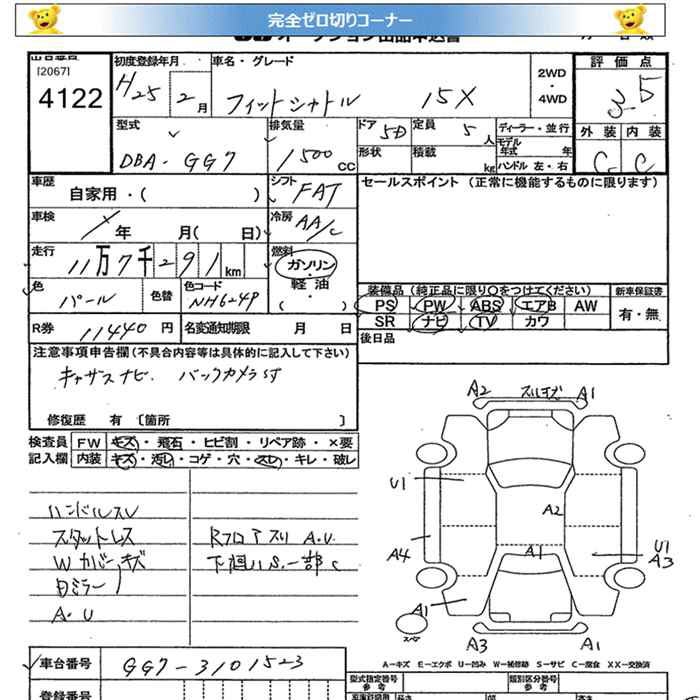 完全ゼロ切りコーナー
[2067]
4122
初度登録年月
H25 2月
車名・グレード
フィットシャトル 15X
2WD
・
4WD
評価点
3.5
外装 内装
C C
型式
DBA-GG7
排気量
1500 CC
ドア 5D
形状
定員 5 人
積載 kg
ディーラー・並行
モデル年式 年
ハンドル 左・右
車歴
自家用・( )
シフト FAT
セールスポイント (正常に機能するものに限ります)
車検
年 月( 日)
冷房 AA/C
走行
11万7千291km
燃料
ガソリン
・
軽油
・
( )
色 パール
色替
色コード NH624P
装備品 (純正品に限り○をつけてください)
新車保証書
PS PW ABS エアB AW
有・無
SR ナビ TV カワ
R券 11440 円
名変通知期限 月 日
後日品
注意事項申告欄 (不具合内容等は具体的に記入して下さい)
ナビ. バックカメラ
修復歴 有 〔箇所 〕
検査員 FW キズ・飛石・ヒビ割・リペア跡・×要
記入欄 内装 キズ・汚レ・コゲ・穴・スレ・キレ・破レ
ハンドルスレ
スタットレス
Wカバーキズ
ミラー
A・U
RフロアスリA.U
下回りS.一部C
A2 A1
U1
A2
A4
A1
U1
A3
A1
スペア
A3 A1
A-キズ E-エクボ U-凹み W-補修跡 S-サビ C-腐食 XX-交換済
車台番号 GG7-3101523
登録番号
型式指定番号
参考
類別区分番号
参考